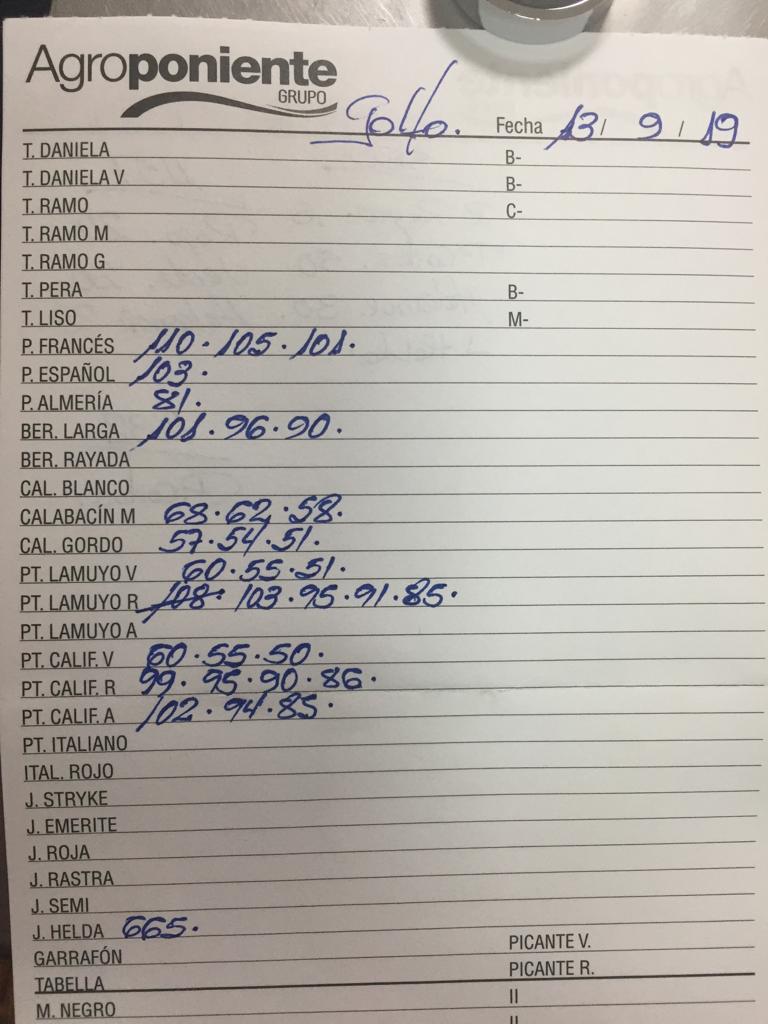 Agroponiente
GRUPO
Golfo. Fecha 13 / 9 / 19
T. DANIELA B-
T. DANIELA V B-
T. RAMO C-
T. RAMO M
T. RAMO G
T. PERA B-
T. LISO M-
P. FRANCÉS 110 · 105 · 101.
P. ESPAÑOL 103 .
P. ALMERÍA 81 .
BER. LARGA 101 . 96 . 90 .
BER. RAYADA
CAL. BLANCO
CALABACÍN M 68 . 62 . 58 .
CAL. GORDO 57 . 54 . 51 .
PT. LAMUYO V 60 . 55 . 51 .
PT. LAMUYO R 108 . 103 . 95 . 91 . 85 .
PT. LAMUYO A
PT. CALIF. V 60 . 55 . 50 .
PT. CALIF. R 99 . 95 . 90 . 86 .
PT. CALIF. A 102 . 94 . 85 .
PT. ITALIANO
ITAL. ROJO
J. STRYKE
J. EMERITE
J. ROJA
J. RASTRA
J. SEMI
J. HELDA 665 .
GARRAFÓN PICANTE V.
TABELLA PICANTE R.
M. NEGRO II